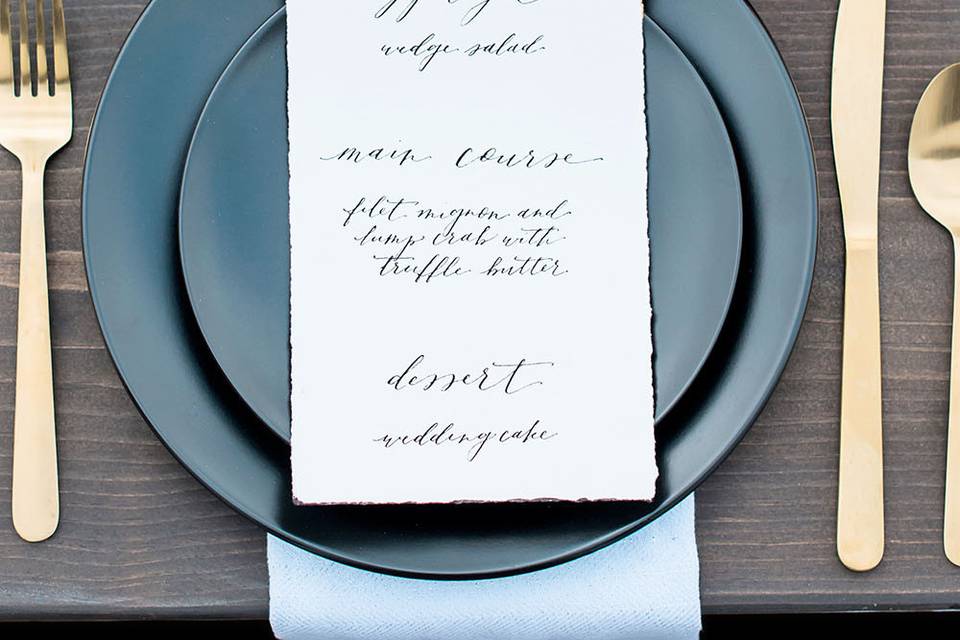 wedge salad
main course
filet mignon and
lump crab with
truffle butter
dessert
wedding cake